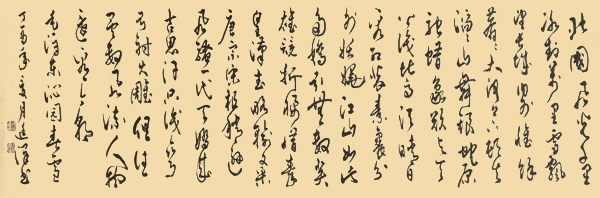 北國風光千里
冰封萬里雪飄
望長城內外惟餘
莽莽大河上下頓失
滔滔山舞銀蛇原
馳蠟象欲與天
公試比高須晴日
看紅裝素裹分
外妖嬈江山如此
多嬌引無數英
雄競折腰惜秦
皇漢武略輸文采
唐宗宋祖稍遜
風騷一代天驕成
吉思汗只識彎
弓射大雕俱往
矣數風流人物
還看今朝
毛澤東沁園春雪
丁亥年夏月書